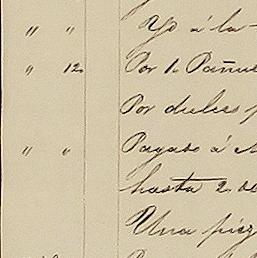 " " Yo á la
" 12 Por 1. Pañue
Por dulces p
" " Pagado á
hasta 2. de
Una piez